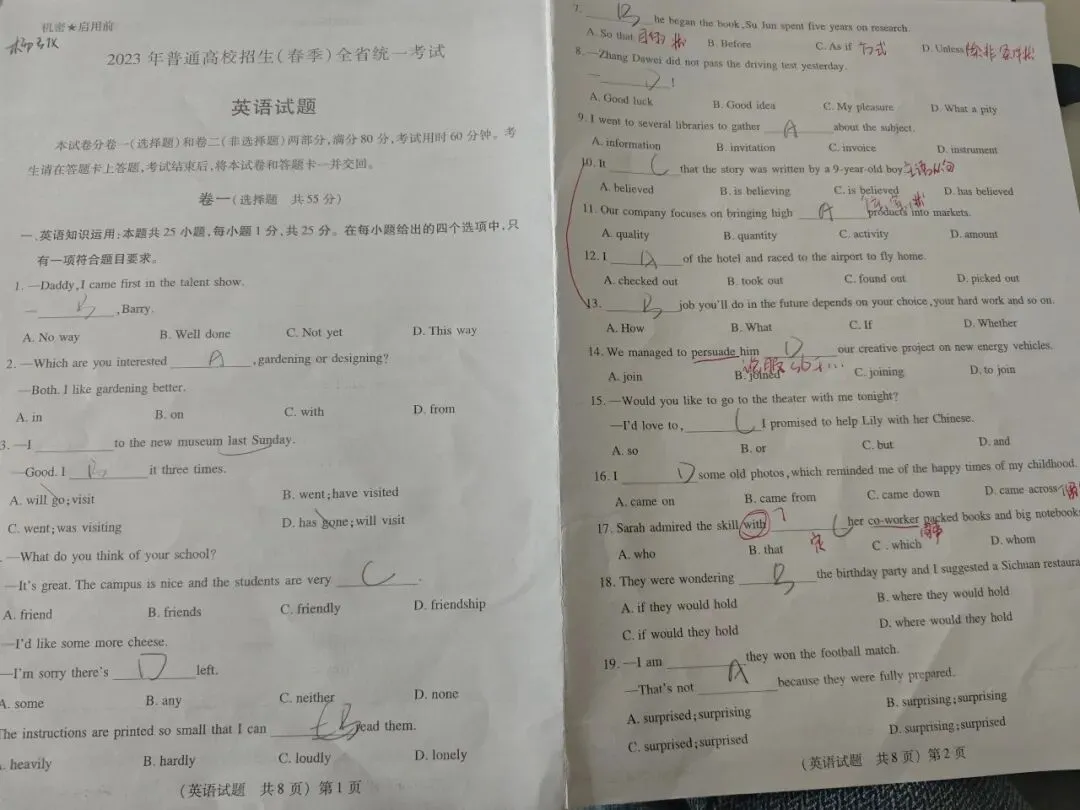 机密★启用前
2023 年普通高校招生(春季)全省统一考试
英语试题
本试卷分卷一(选择题)和卷二(非选择题)两部分,满分80分,考试用时60分钟。考
生请在答题卡上答题,考试结束后,将本试卷和答题卡一并交回。
卷一(选择题 共55分)
一、英语知识运用:本题共25小题,每小题1分,共25分。在每小题给出的四个选项中,只
有一项符合题目要求。
1. —Daddy, I came first in the talent show.
—____B____, Barry.
A. No way B. Well done C. Not yet D. This way
2. —Which are you interested ____A____, gardening or designing?
—Both. I like gardening better.
A. in B. on C. with D. from
3. —I ________ to the new museum last Sunday.
—Good. I ____B____ it three times.
A. will go; visit B. went; have visited
C. went; was visiting D. has gone; will visit
—What do you think of your school?
—It's great. The campus is nice and the students are very ____C____.
A. friend B. friends C. friendly D. friendship
—I'd like some more cheese.
—I'm sorry there's ____D____ left.
A. some B. any C. neither D. none
The instructions are printed so small that I can ____B____ read them.
. heavily B. hardly C. loudly D. lonely
(英语试题 共8页)第1页
7. ____B____ he began the book, Su Jun spent five years on research.
A. So that 目的状 B. Before C. As if 方式 D. Unless 除非 条件状
8. —Zhang Dawei did not pass the driving test yesterday.
—____D____!
A. Good luck B. Good idea C. My pleasure D. What a pity
9. I went to several libraries to gather ____A____ about the subject.
A. information B. invitation C. invoice D. instrument
10. It ____C____ that the story was written by a 9-year-old boy. 主语从句
A. believed B. is believing C. is believed D. has believed
11. Our company focuses on bringing high ____A____ products into markets.
A. quality B. quantity C. activity D. amount
12. I ____A____ of the hotel and raced to the airport to fly home.
A. checked out B. took out C. found out D. picked out
13. ____B____ job you'll do in the future depends on your choice, your hard work and so on.
A. How B. What C. If D. Whether
14. We managed to persuade him ____D____ our creative project on new energy vehicles.
说服 sb 干…
A. join B. joined C. joining D. to join
15. —Would you like to go to the theater with me tonight?
—I'd love to, ____C____ I promised to help Lily with her Chinese.
A. so B. or C. but D. and
16. I ____D____ some old photos, which reminded me of the happy times of my childhood.
A. came on B. came from C. came down D. came across
17. Sarah admired the skill with ____C____ her co-worker packed books and big notebooks
A. who B. that 定 C. which 同事 D. whom
18. They were wondering ____B____ the birthday party and I suggested a Sichuan restaura
A. if they would hold B. where they would hold
C. if would they hold D. where would they hold
19. —I am ________ they won the football match.
—That's not ____A____ because they were fully prepared.
A. surprised; surprising B. surprising; surprising
C. surprised; surprised D. surprising; surprised
(英语试题 共8页)第2页